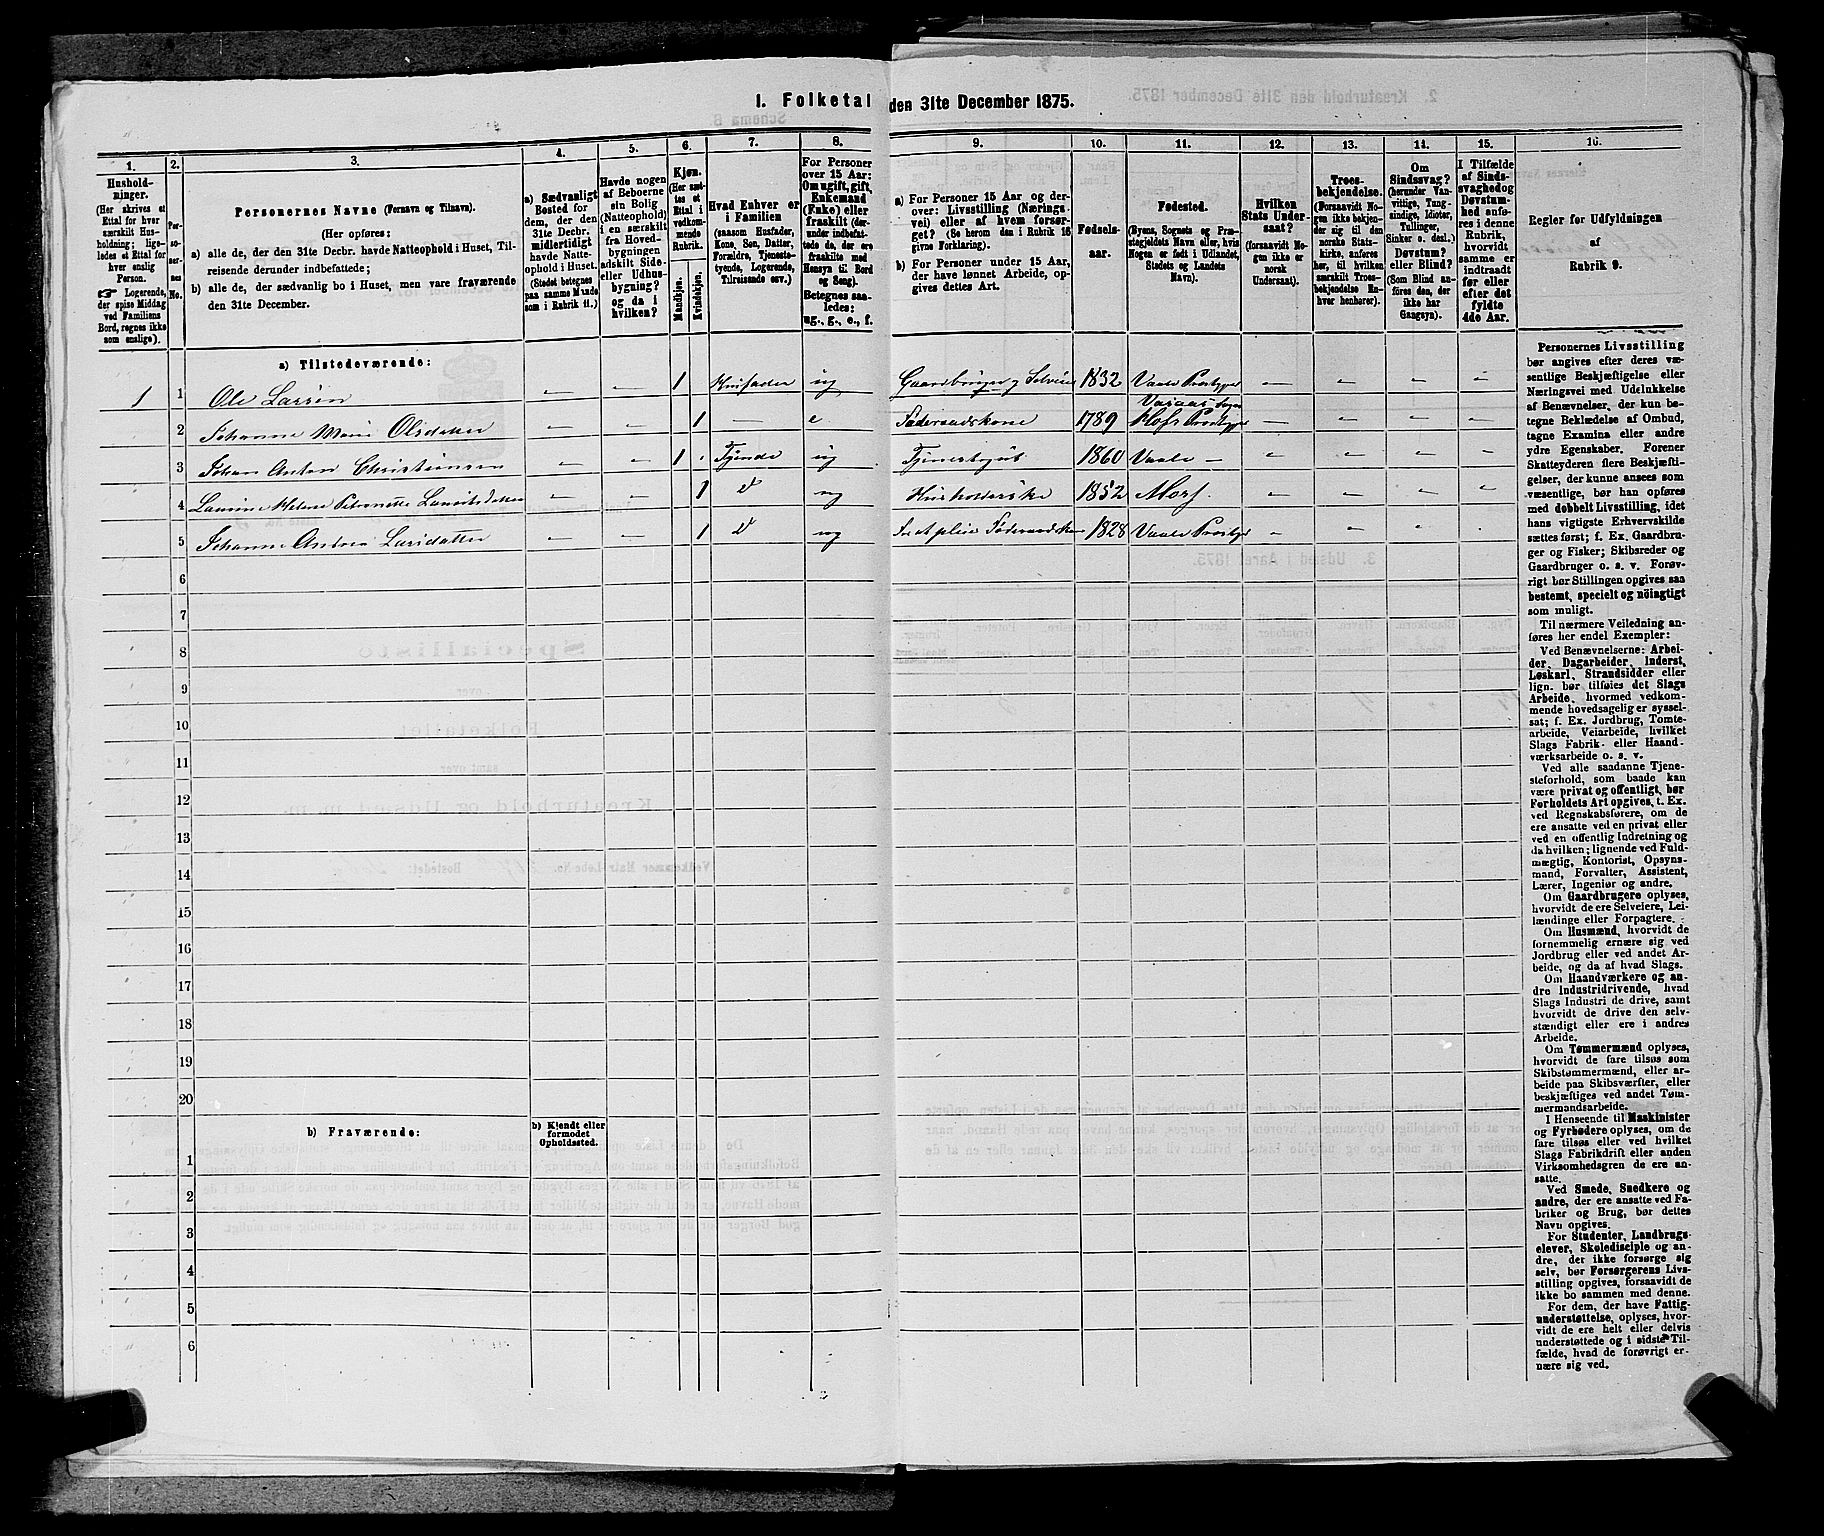 I. Folketal den 31te December 1875.
1. 2. 3. 4. 5. 6. 7. 8. 9. 10. 11. 12. 13. 14. 15. 16.
Hushold-
ninger.
(Her skrives et
Ettal for hver
særskilt Hus-
holdning; lige-
ledes et Ettal for
hver enslig
Person.
☞ Logerende,
der spise Middag
ved Familiens
Bord, regnes ikke
som enslige).
Per-
so-
ner-
nes
No.
Personernes Navne (Fornavn og Tilnavn).
(Her opføres:
a) alle de, der den 31te Decbr. havde Natteophold i Huset, Til-
reisende derunder indbefattede;
b) alle de, der sædvanlig bo i Huset, men vare fraværende
den 31te December.
a) Sædvanligt
Bosted for
dem, der den
31te Decbr.
midlertidigt
havde Natte-
ophold i Huset.
(Stedet betegnes
paa samme Maade
som i Rubrik 11.)
Havde nogen
af Beboerne
sin Bolig
(Natteophold)
i en særskilt
fra Hoved-
bygningen
adskilt Side-
eller Udhus-
bygning?
og da i
hvilken?
Kjøn.
(Her sæt-
tes et
Ettal i
vedkom-
mende
Rubrik.
Mandkjøn.
Kvindekjøn.
Hvad Enhver er
i Familien
(saasom Husfader,
Kone, Søn, Datter,
Forældre, Tjeneste-
tyende, Logerende,
Tilreisende osv.)
For Personer
over 15 Aar:
Om ugift, gift,
Enkemand
(Enke) eller
fraskilt (der-
under indbefat-
tede de, der ere
fraskilte med
Hensyn til Bord
og Seng).
Betegnes saa-
ledes:
ug., g., e., f.
a) For Personer 15 Aar og der-
over: Livsstilling (Nærings-
vei) eller af hvem forsør-
get? (Se herom den i Rubrik 16
givne Forklaring).
b) For Personer under 15 Aar,
der have lønnet Arbeide, op-
gives dettes Art.
Fødsels-
aar.
Fødested.
(Byens, Sognets og Præ-
stegjeldets Navn eller, hvis
Nogen er født i Udlandet,
Stedets og Landets
Navn).
Hvilken
Stats Under-
saat?
(forsaavidt No-
gen ikke er
norsk
Undersaat).
Troes-
bekjendelse.
(Forsaavidt No-
gen ikke bekjen-
der sig til den
norske Stats-
kirke, anføres
her, til hvilken
særskilt Troes-
bekjendelse En-
hver henhører).
Om
Sindssvag?
(herunder Van-
vittige, Tung-
sindige, Idioter,
Tullinger,
Sinker o. desl.)
Døvstum?
eller Blind?
(Som Blind an-
føres den, der
ikke har
Gangsyn).
I Tilfælde
af Sinds-
svaghed og
Døvstum-
hed anfø-
res i denne
Rubrik,
hvorvidt
samme er
indtraadt
før eller
efter det
fyldte
4de Aar.
Regler for Udfyldningen
af
Rubrik 9.
a) Tilstedeværende:
1 1 Ole Larsen — — 1 Husfader ug Gaardbruger og Selveier 1832 Vaale Prstgjd — — — —
2 Johanne Marie Olsdatter 1 — e Føderaadskone 1789 Hofs Prstgj — — — —
3 Johan Anton Christiansen — — 1 Tjener ug 1860 Vaale —
4 Laurine Helene — — 1 d ug Husholderske 1852
5 Johanne Andrea Larsdatter — — 1 d ug 1828 Vaale Prstgj
6
7
8
9
10
11
12
13
14
15
16
17
18
19
20
b) Fraværende:
b) Kjendt eller
formodet
Opholdssted.
1
2
3
4
5
6
Personernes Livsstilling
bør angives efter deres væ-
sentlige Beskjæftigelse eller
Næringsvei med Udelukkelse
af Benævnelser, der kun be-
tegne Beklædelse af Ombud,
tagne Examina eller andre
ydre Egenskaber. Forener
Skatteyderen flere Beskjæfti-
gelser, der kunne ansees som
væsentlige, bør han opføres
med dobbelt Livsstilling, idet
hans vigtigste Erhvervskilde
sættes først; f. Ex. Gaardbru-
ger og Fisker; Skibsreder og
Gaardbruger o. s. v. Forøv-
rigt bør Stillingen opgives saa
bestemt, specielt og nöiagtigt
som muligt.
Til nærmere Veiledning an-
føres her endel Exempler:
Ved Benævnelserne: Arbei-
der, Dagarbeider, Inderst,
Løskarl, Strandsidder eller
lign. bør tilføies det Slags
Arbeide, hvormed vedkom-
mende hovedsagelig er syssel-
sat; f. Ex. Jordbrug, Tomte-
arbeide, Veiarbeide, hvilket
Slags Fabrik- eller Haand-
værksarbeide o. s. v.
Ved alle saadanne Tjene-
steforhold, som baade kan
være privat og offentligt, bør
Forholdets Art opgives, t. Ex.
ved Regnskabsførere, om de
ere ansatte ved en privat eller
ved en offentlig Indretning og
da hvilken; lignende ved Fuld-
mægtig, Kontorist, Opsyns-
mand, Forvalter, Assistent,
Lærer, Ingeniør og andre.
Om Gaardbrugere oplyses,
hvorvidt de ere Selveiere, Lei-
lændinge eller Forpagtere.
Om Husmænd, hvorvidt de
fornemmelig ernære sig ved
Jordbrug eller ved andet Ar-
beide, og da af hvad Slags.
Om Haandværkere og an-
dre Industridrivende, hvad
Slags Industri de drive, samt
hvorvidt de drive den selv-
stændigt eller ere i andres
Arbeide.
Om Tømmermænd oplyses,
hvorvidt de fare tilsøs som
Skibstømmermænd, eller ar-
beide paa Skibsværfter, eller
beskjæftiges ved andet Tøm-
mermandsarbeide.
I Henseende til Maskinister
og Fyrbødere oplyses, om de
fare tilsøs eller ved hvilket
Slags Fabrikdrift eller anden
Virksomhedsgren de ere an-
satte.
Ved Smede, Snedkere og
andre, der ere ansatte ved Fa-
briker og Brug, bør dettes
Navn opgives.
For Studenter, Landbrugs-
elever, Skoledisciple og an-
dre, der ikke forsørge sig
selv, bør Forsørgerens Livs-
stilling opgives, forsaavidt de
ikke bo sammen med denne.
For dem, der have Fattig-
understøttelse, oplyses, hvor-
vidt de ere helt eller delvis
understøttede og i sidste Til-
fælde, hvad de forøvrigt er-
nære sig ved.